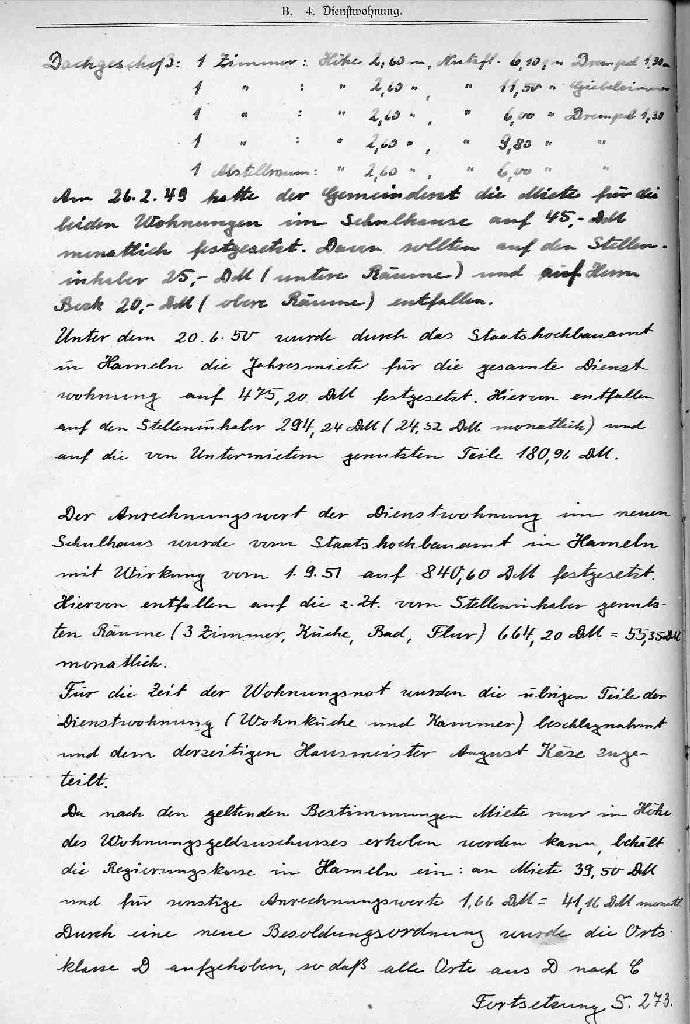 B. 4. Dienstwohnung.
Dachgeschoß: 1 Zimmer: Höhe 2,60 m, Nutzfl. 6,10 qm Drempel 1,30 m
1 " : " 2,60 ", " 11,50 " Giebelzimmer
1 " : " 2,60 ", " 6,00 " Drempel 1,30
1 " : " 2,60 ", " 9,80 " "
1 Abstellraum: " 2,60 ", " 6,00 " "
Am 26.2.49 hatte der Gemeinderat die Miete für die
beiden Wohnungen im Schulhause auf 45,- DM
monatlich festgesetzt. Davon sollten auf den Stellen-
inhaber 25,- DM (untere Räume) und auf Herrn
Beck 20,- DM (obere Räume) entfallen.
Unter dem 20.6.50 wurde durch das Staatshochbauamt
in Hameln die Jahresmiete für die gesamte Dienst
wohnung auf 475,20 DM festgesetzt. Hiervon entfallen
auf den Stelleninhaber 294,24 DM (24,52 DM monatlich) und
auf die von Untermietern genutzten Teile 180,96 DM.
Der Anrechnungswert der Dienstwohnung im neuen
Schulhaus wurde vom Staatshochbauamt in Hameln
mit Wirkung vom 1.9.51 auf 840,60 DM festgesetzt.
Hiervon entfallen auf die z. Zt. vom Stelleninhaber genutz-
ten Räume (3 Zimmer, Küche, Bad, Flur) 664,20 DM = 55,35 DM
monatlich.
Für die Zeit der Wohnungsnot wurden die übrigen Teile der
Dienstwohnung (Wohnküche und Kammer) beschlagnahmt
und dem derzeitigen Hausmeister August Käse zuge-
teilt.
Da nach den geltenden Bestimmungen Miete nur in Höhe
des Wohnungsgeldzuschusses erhoben werden kann, behält
die Regierungskasse in Hameln ein: an Miete 39,50 DM
und für sonstige Anrechnungswerte 1,66 DM = 41,16 DM monatl.
Durch eine neue Besoldungsordnung wurde die Orts
klasse D aufgehoben, so daß alle Orte aus D nach C
Fortsetzung S. 273.